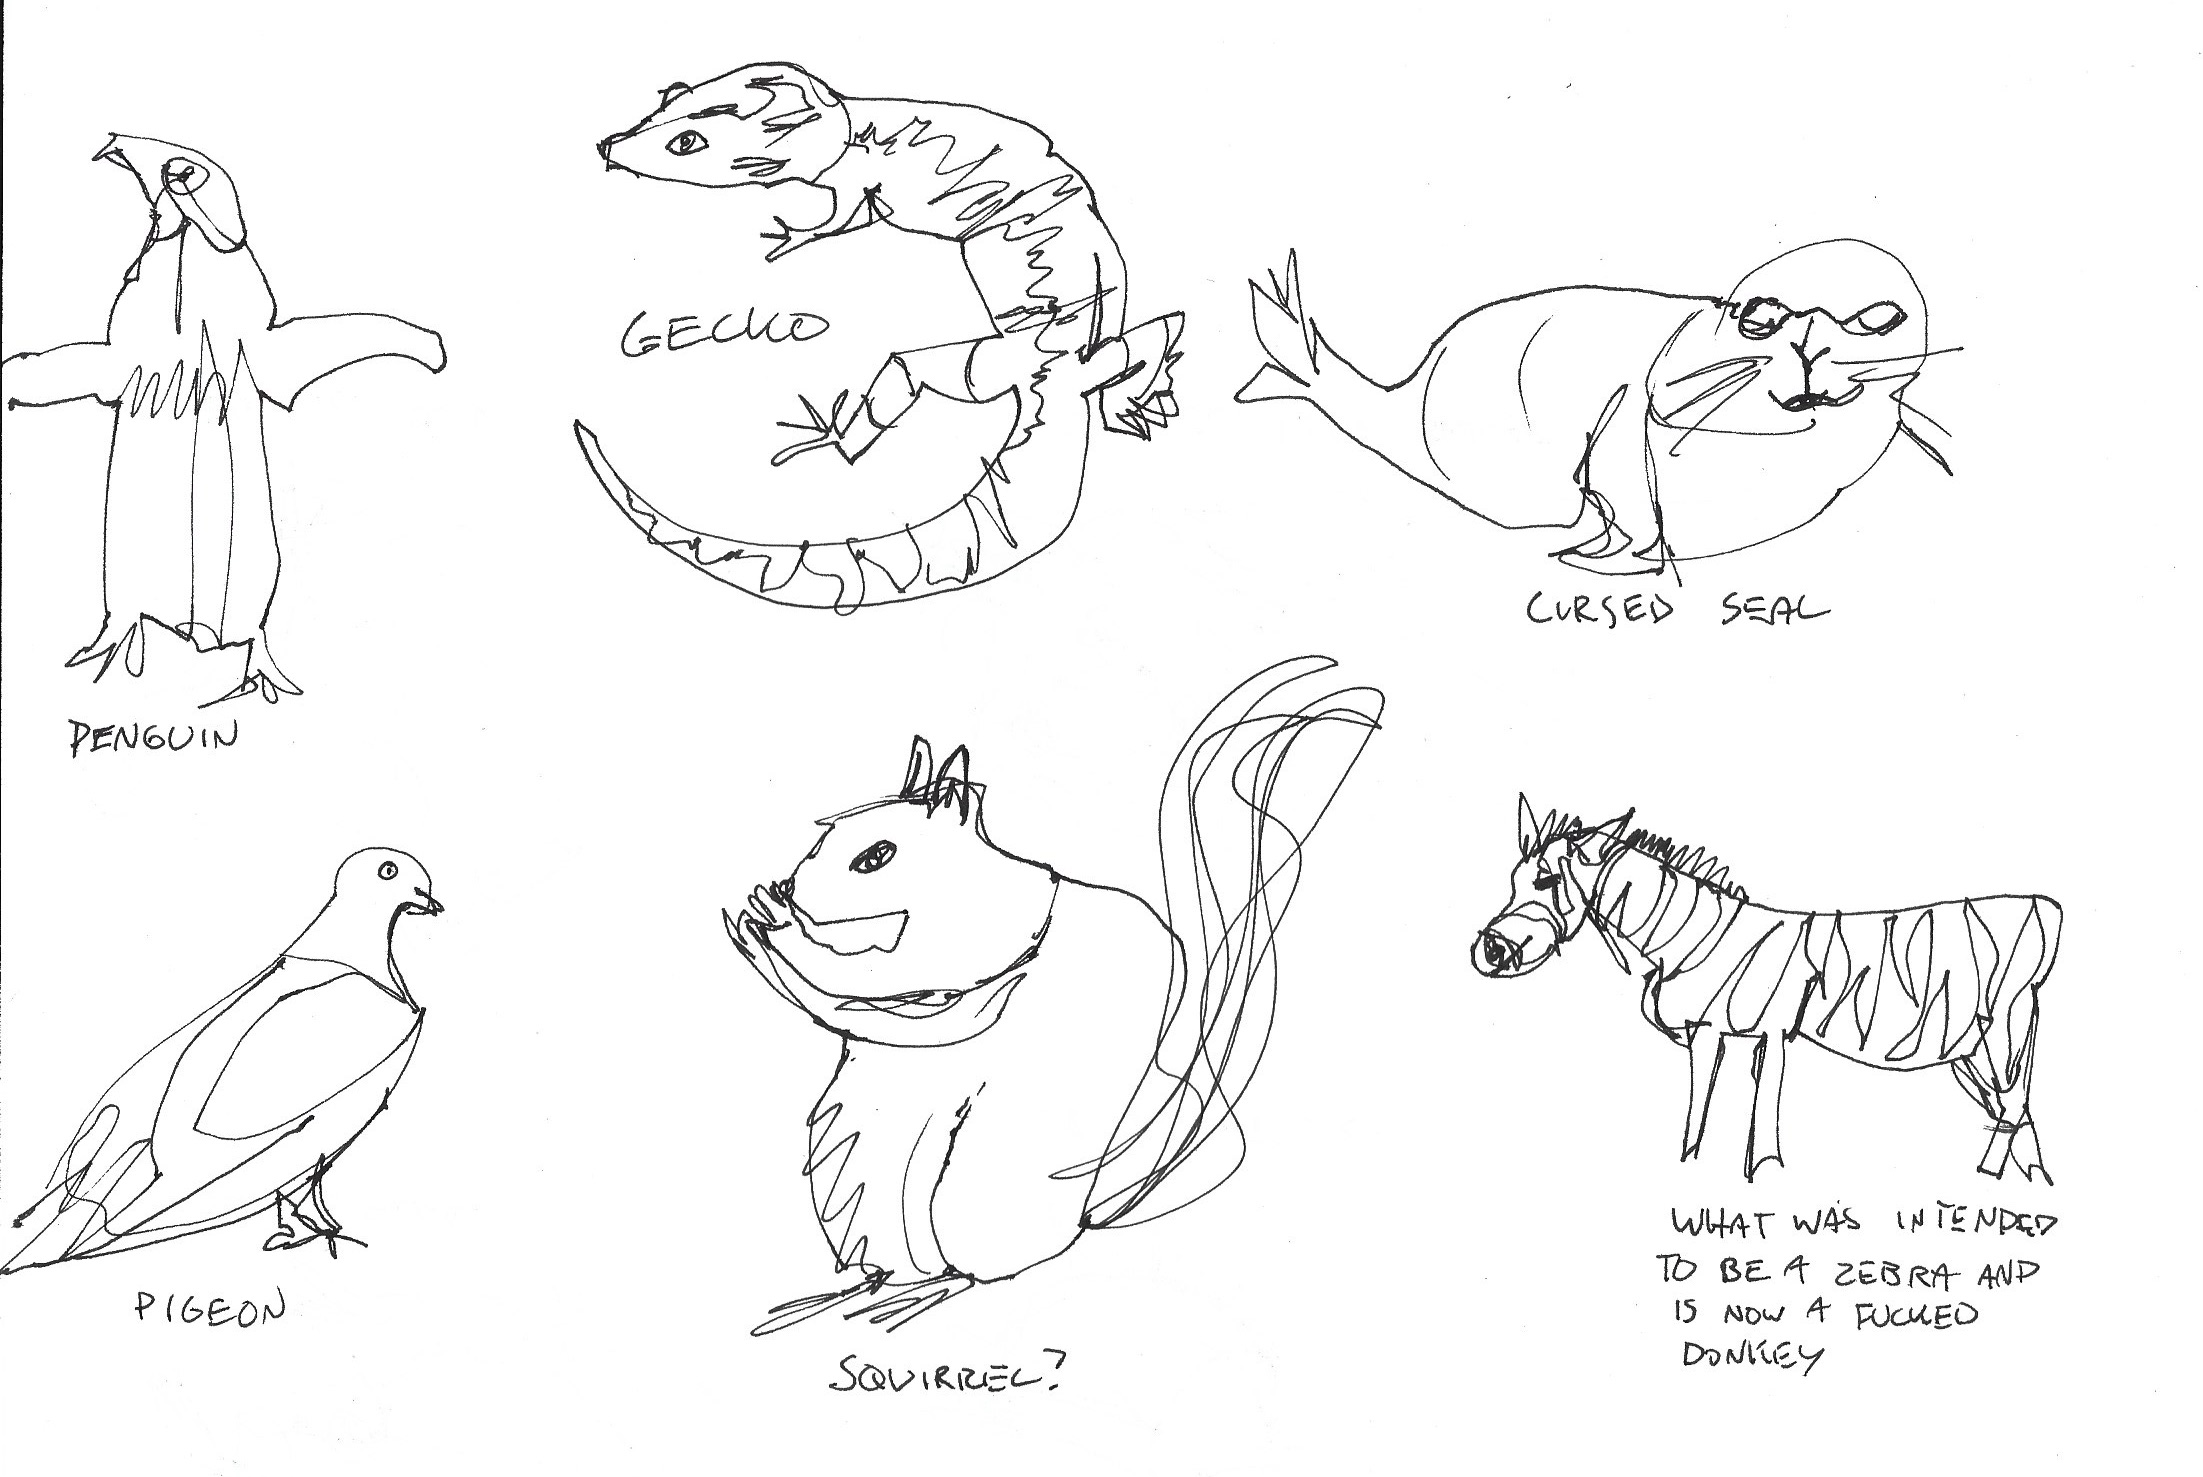 GECKO
CURSED SEAL
PENGUIN
PIGEON
SQUIRREL?
WHAT WAS INTENDED
TO BE A ZEBRA AND
IS NOW A FUCKED
DONKEY